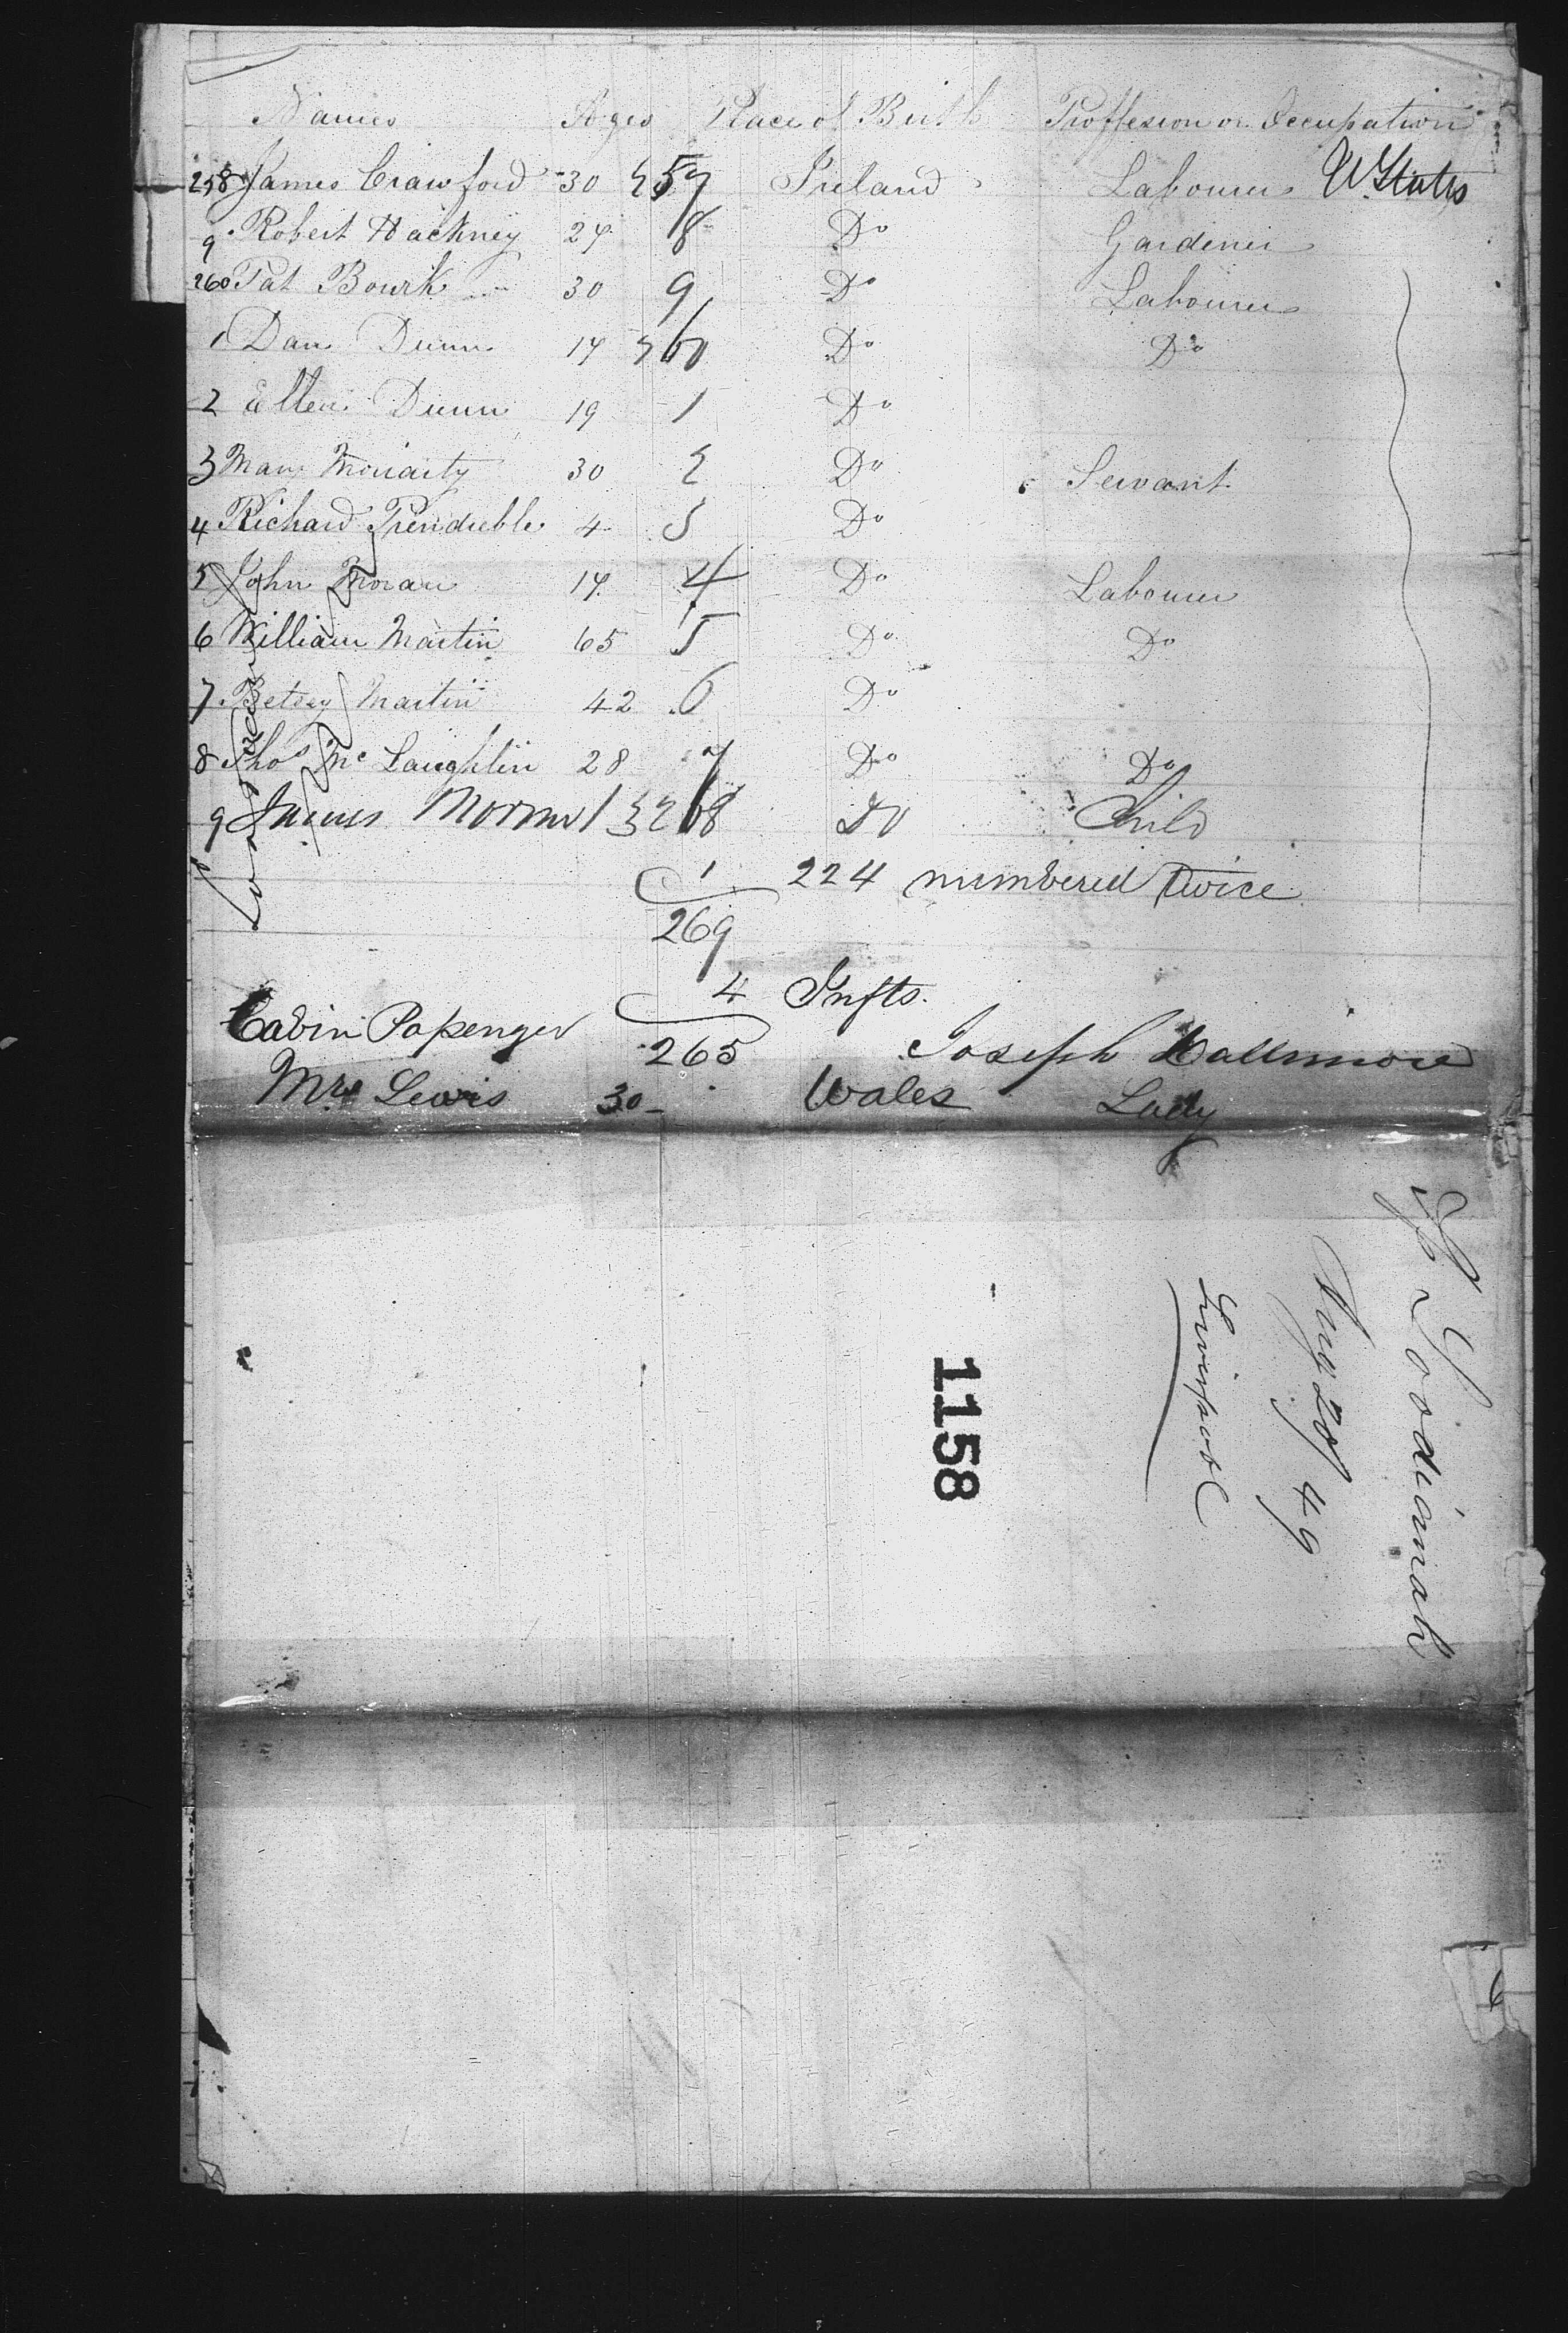 Names Ages Place of Birth Proffesion or Occupation
258 James Crawford 30 257 Ireland Labourer U States
9 Robert Hackney 24 8 Do Gardener
260 Pat Bourk 30 9 Do Labourer
1 Dan Dunn 14 260 Do Do
2 Ellen Dunn 19 1 Do
3 Mary Moriarty 30 2 Do Servant
4 Richard 4 3 Do
5 John Moran 14 4 Do Labourer
6 William Martin 65 5 Do Do
7 Betsey Martin 42 6 Do
8 Thos Mc Laughlin 28 7 Do Do
9 James Moran 1 268 Do Child
1 224 numbered twice
269
4 Infts.
Cabin Pasenger 265 Joseph
Mrs Lewis 30 Wales Lady
Sp Loodianah
Aug 20 49
Liverpool
1158
6